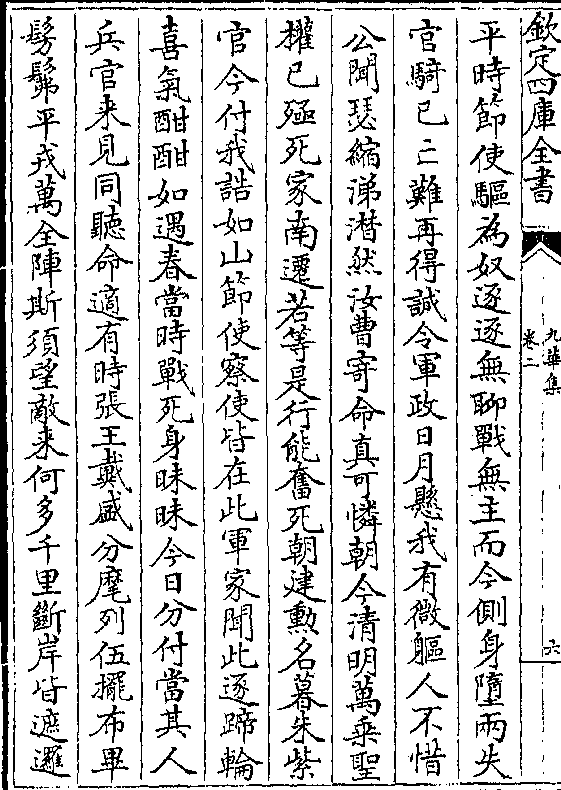 欽定四庫全書
九華集
卷二
六
平時節使驅為奴逐逐無聊戰無主而今側身墮兩失
官騎已亡難再得誠令軍政日月懸我有微軀人不惜
公聞瑟縮涕潸然汝曹寄命真可憐朝今清明萬乘聖
權已殛死家南遷若等是行能奮死朝建勲名暮朱紫
官今付我誥如山節使察使皆在此軍家聞此逐蹄輪
喜氣酣酣如遇春當時戰死身昧昧今日分付當其人
兵官来見同聽命適有時張王戴盛分麾列伍擺布畢
髣髴平戎萬全陣斯須望敵来何多千里斷岸皆遮邏